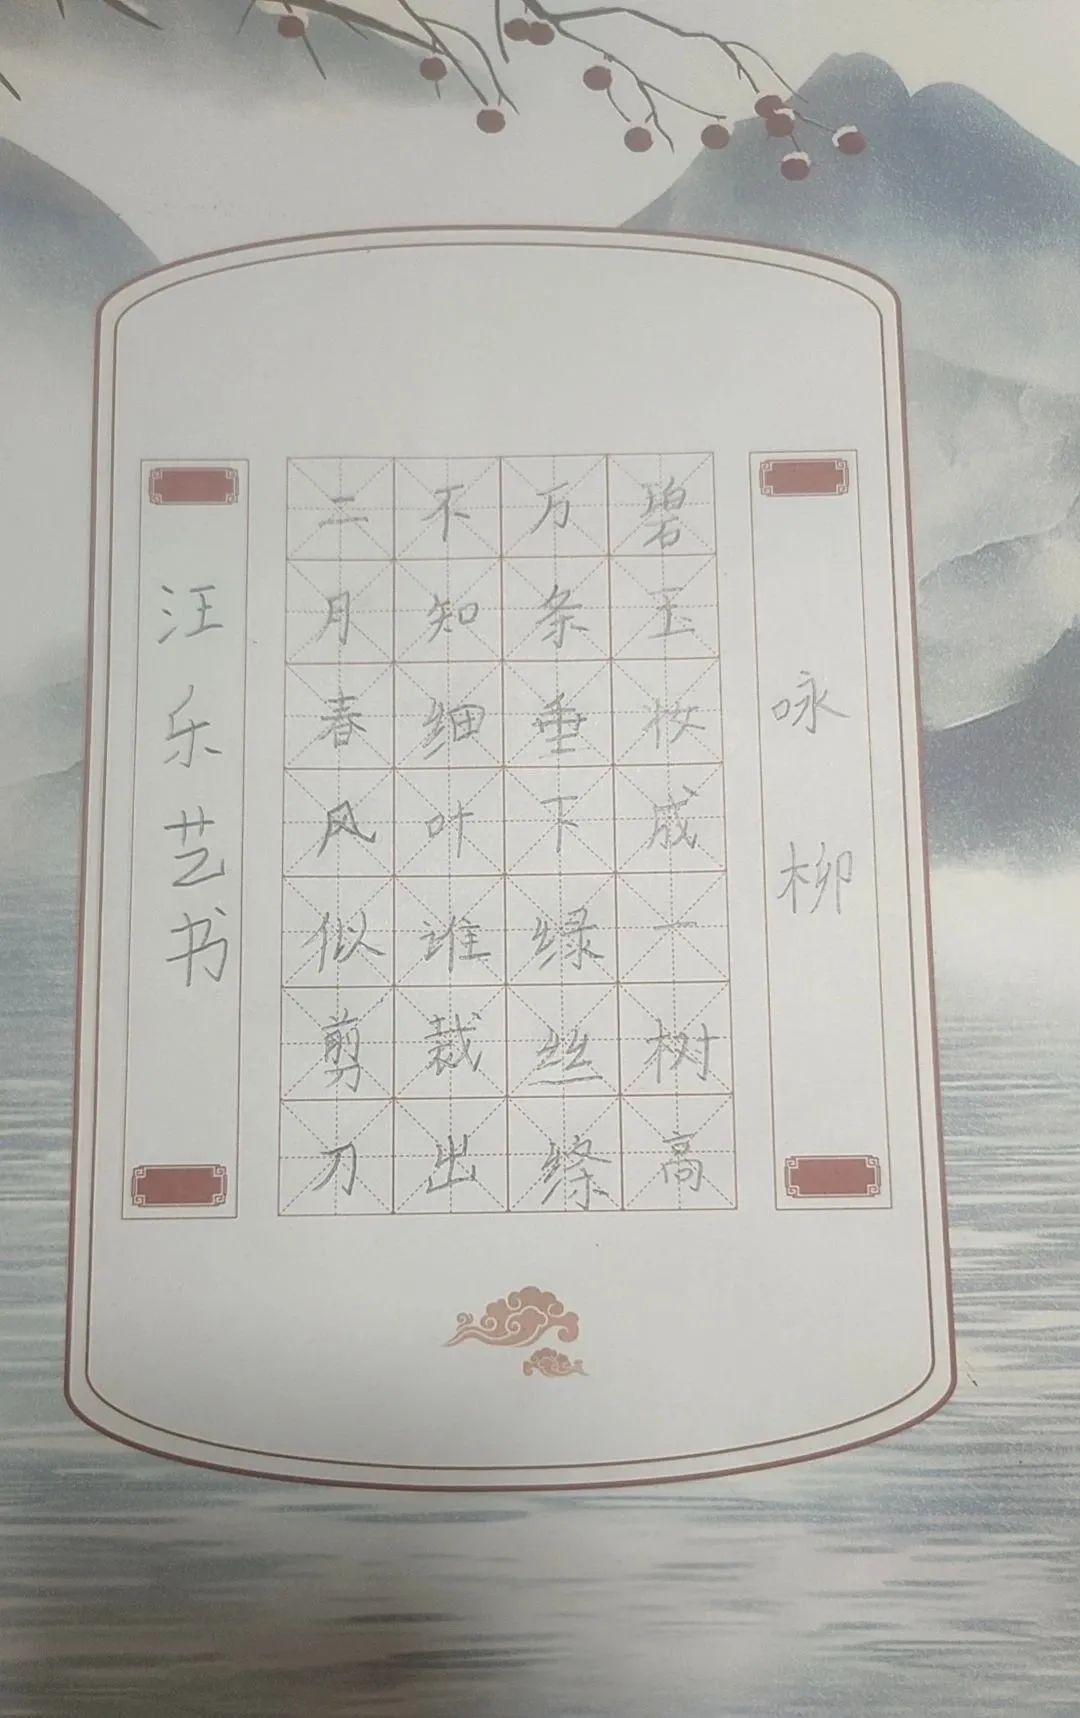 咏柳
碧玉妆成一树高
万条垂下绿丝绦
不知细叶谁裁出
二月春风似剪刀
汪乐艺书